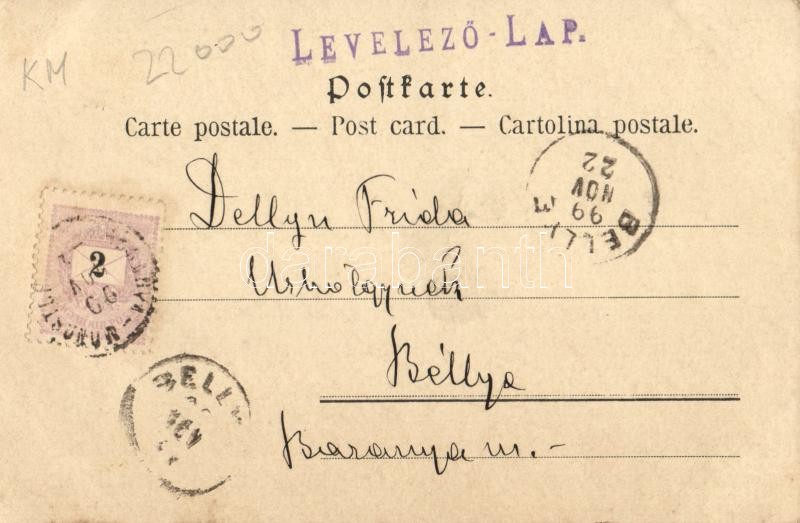 KM 22000
LEVELEZŐ-LAP.
Postkarte.
Carte postale. — Post card. — Cartolina postale.
Dellyn Frida
Urhölgynek
Béllye
Baranya m.-
2
BELLYE
99
NOV
22
BELLY
NOV
darabanth